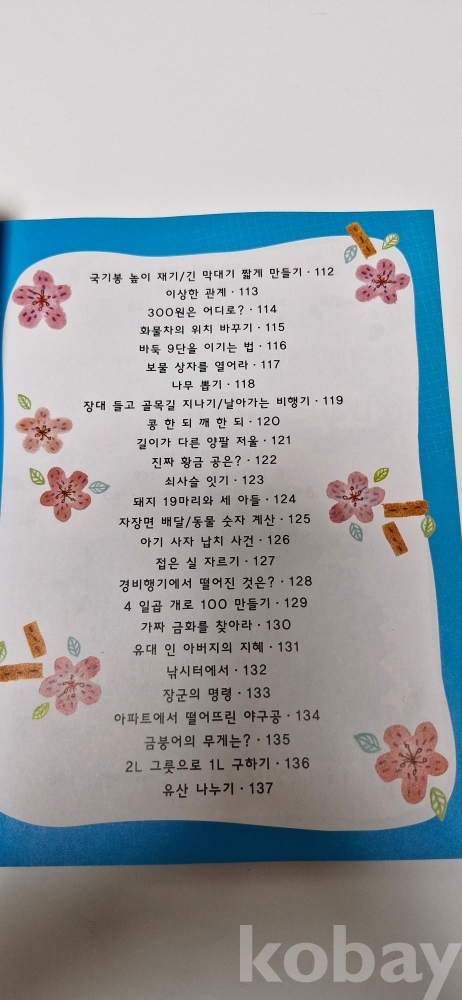 국기봉 높이 재기/긴 막대기 짧게 만들기 · 112
이상한 관계 · 113
300원은 어디로? · 114
화물차의 위치 바꾸기 · 115
바둑 9단을 이기는 법 · 116
보물 상자를 열어라 · 117
나무 뽑기 · 118
장대 들고 골목길 지나기/날아가는 비행기 · 119
콩 한 되 깨 한 되 · 120
길이가 다른 양팔 저울 · 121
진짜 황금 공은? · 122
쇠사슬 잇기 · 123
돼지 19마리와 세 아들 · 124
자장면 배달/동물 숫자 계산 · 125
아기 사자 납치 사건 · 126
접은 실 자르기 · 127
경비행기에서 떨어진 것은? · 128
4 일곱 개로 100 만들기 · 129
가짜 금화를 찾아라 · 130
유대 인 아버지의 지혜 · 131
낚시터에서 · 132
장군의 명령 · 133
아파트에서 떨어뜨린 야구공 · 134
금붕어의 무게는? · 135
2L 그릇으로 1L 구하기 · 136
유산 나누기 · 137
kobay